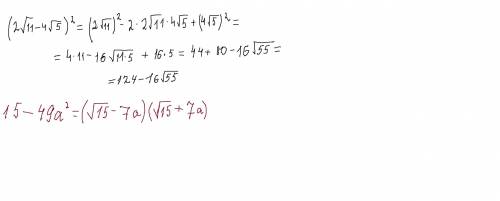 (2√11-4√5)² = (2√11)² - 2·2√11·4√5 + (4√5)² =
= 4·11-16√11·5 + 16·5 = 44+80-16√55 =
= 124-16√55
15-49a² = (√15-7a)(√15+7a)